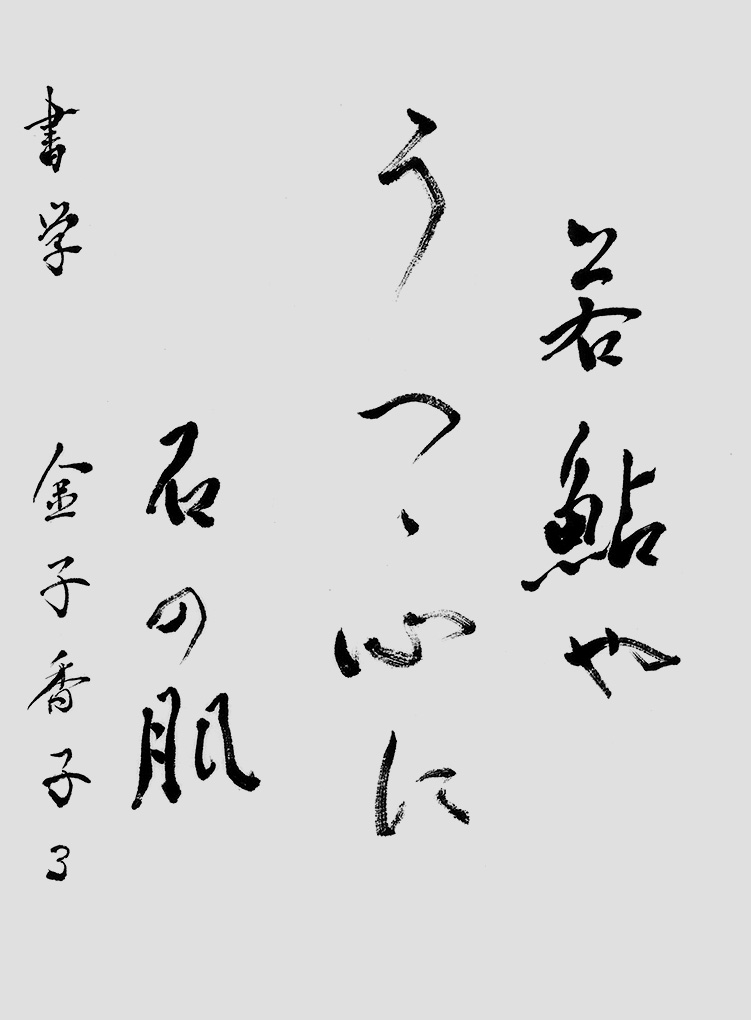 若鮎や
うつゝ心に
石の肌
書学 金子香子る